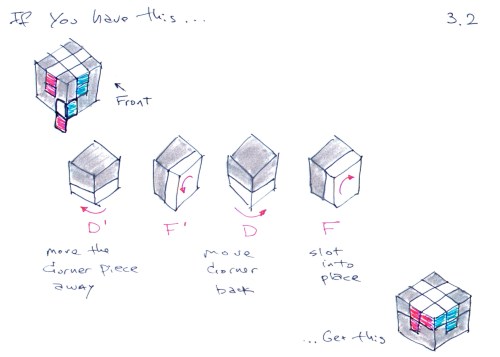 If You have this...
3.2
Front
D'
F'
D
F
move the
corner piece
away
move
corner
back
slot
into
place
...Get this